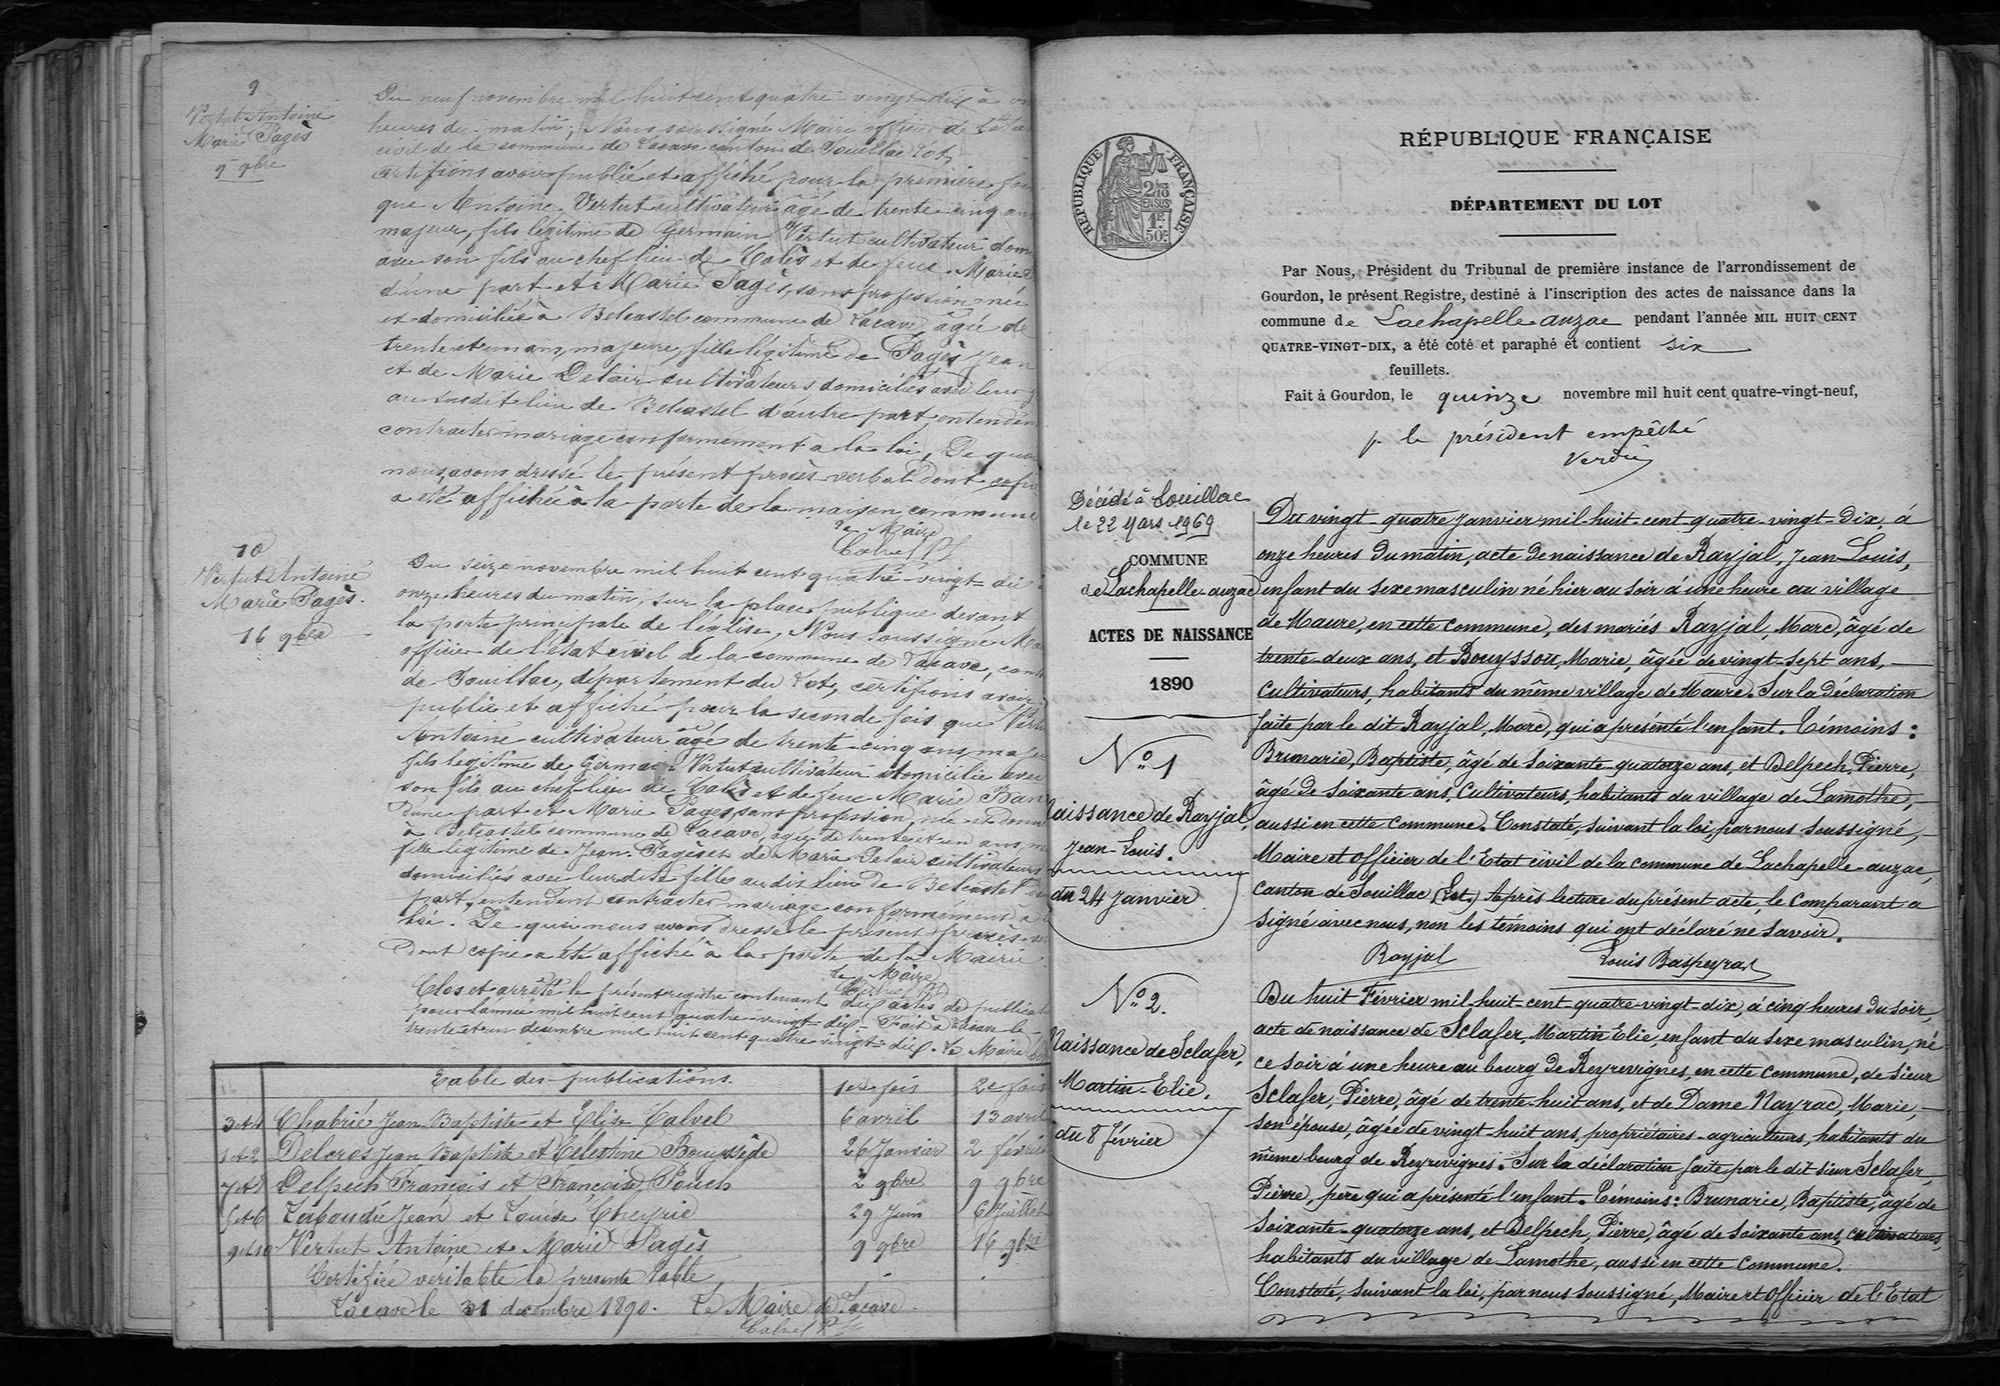 9
Vertut Antoine
Marie Pagès
9 9bre
Du neuf novembre mil huit cent quatre-vingt-dix à
heures du matin, Nous soussigné Maire officier de l'état
civil de la commune de Lacave canton de Souillac Lot,
certifions avoir publié et affiché pour la première
que Antoine Vertut cultivateur âgé de trente cinq ans
majeur, fils légitime de Germain Vertut cultivateur
avec son fils au chef lieu de Calès et de feue Marie
d'une part et Marie Pagès, sans profession née
et domiciliée à Belcastel commune de Lacave âgée de
trente et un ans, majeure, fille légitime de Pagès Jean
et de Marie Delair cultivateurs domiciliés avec leur
au susdit lieu de Belcastel d'autre part, entendent
contracter mariage conformément à la loi, De quoi
nous, avons dressé le présent procès-verbal dont copie
a été affichée à la porte de la maison commune
Le Maire
Calvel
10
Vertut Antoine
Marie Pagès.
16 9bre
Du seize novembre mil huit cent quatre-vingt-dix
onze heures du matin, sur la place publique devant
la porte principale de l'église, Nous soussigné
officier de l'état civil de la commune de Lacave,
de Souillac, département du Lot, certifions avoir
publié et affiché pour la seconde fois que
Antoine cultivateur âgé de trente-cinq ans,
fils légitime de Germain Vertut cultivateur domicilié avec
son fils au chef-lieu de Calès et de feue Marie
d'une part et Marie Pagès, sans profession, née et
à Belcastel commune de Lacave, âgée de trente et un ans,
fille légitime de Jean Pagès et de Marie Delair cultivateurs
domiciliés avec leur dite fille au dit lieu de Belcastel
part, entendent contracter mariage conformément à
loi. De quoi nous avons dressé le présent procès
Dont copie a été affiché à la porte de la Mairie
Le Maire
Clos et arrêté le présent registre contenant dix actes de
pour l'année mil huit cent quatre-vingt dix. Fait à Lacave le
trente et un décembre mil huit cent quatre vingt-dix. Le Maire
Table des publications. 1ere fois 2e fois
3 et 4 Chabrié Jean Baptiste et Elisa Calvel 6 avril 13 avril
1 et 2 Delcros Jean Baptiste et Célestine Bouyssède 26 Janvier 2 février
7 et 8 Delpech François et Françoise Pouch 2 9bre 9 9bre
5 et 6 Laboudie Jean et Louise Cheyrié 29 Juin 6 Juillet
9 et 10 Vertut Antoine et Marie Pagès 9 9bre 16 9bre
Certifiée véritable la presente table
Lacave le 31 decembre 1890. Le Maire de Lacave.
RÉPUBLIQUE FRANÇAISE
2/10 EN SUS
1F 50c
RÉPUBLIQUE FRANÇAISE
DÉPARTEMENT DU LOT
Par Nous, Président du Tribunal de première instance de l'arrondissement de
Gourdon, le présent Registre, destiné à l'inscription des actes de naissance dans la
commune de Lachapelle-auzac pendant l'année MIL HUIT CENT
QUATRE-VINGT-DIX, a été coté et paraphé et contient six
feuillets.
Fait à Gourdon, le quinze novembre mil huit cent quatre-vingt-neuf,
p. le président empêché
Décédé à Souillac
le 22 Mars 1969
COMMUNE
de Lachapelle-auzac
ACTES DE NAISSANCE
1890
No 1
Naissance de Rayjal,
Jean-Louis.
du 24 Janvier
Du vingt-quatre Janvier mil-huit-cent-quatre-vingt-dix, à
onze heures du matin, acte de naissance de Rayjal, Jean Louis,
enfant du sexe masculin né hier au soir à une heure au village
de Maure, en cette commune, des mariés Rayjal, Marc, âgé de
trente-deux ans, et Bouyssou, Marie, âgée de vingt-sept ans,
Cultivateurs, habitants du même village de Maure. Sur la déclaration
faite par le dit Rayjal, Marc, qui a présenté l'enfant. Témoins:
Brunarie, Baptiste, âgé de soixante-quatorze ans, et Delpech, Pierre,
âgé de soixante ans, Cultivateurs, habitants du village de Lamothe,
aussi en cette commune. Constaté, suivant la loi, par nous soussigné,
Maire et officier de l'Etat civil de la commune de Lachapelle-auzac,
canton de Souillac (Lot.) Après lecture du présent acte, le comparant a
signé avec nous, non les témoins qui ont déclaré ne savoir.
Rayjal Louis Baspeyras
No 2.
Naissance de Sclafer,
Martin-Elie.
du 8 février
Du huit Février mil-huit-cent-quatre-vingt-dix, à cinq heures du soir,
acte de naissance de Sclafer, Martin Elie, enfant du sexe masculin, né
ce soir à une heure au bourg de Reyrevignes, en cette commune, de sieur
Sclafer, Pierre, âgé de trente-huit ans, et de Dame Nayrac, Marie,
son épouse, âgée de vingt-huit ans, propriétaires-agriculteurs, habitants du
même bourg de Reyrevignes. Sur la déclaration faite par le dit sieur Sclafer,
Pierre, père qui a présenté l'enfant. Témoins: Brunarie, Baptiste, âgé de
soixante-quatorze ans, et Delpech, Pierre, âgé de soixante ans, cultivateurs,
habitants du village de Lamothe, aussi en cette commune.
Constaté, suivant la loi, par nous soussigné, Maire et Officier de l'Etat